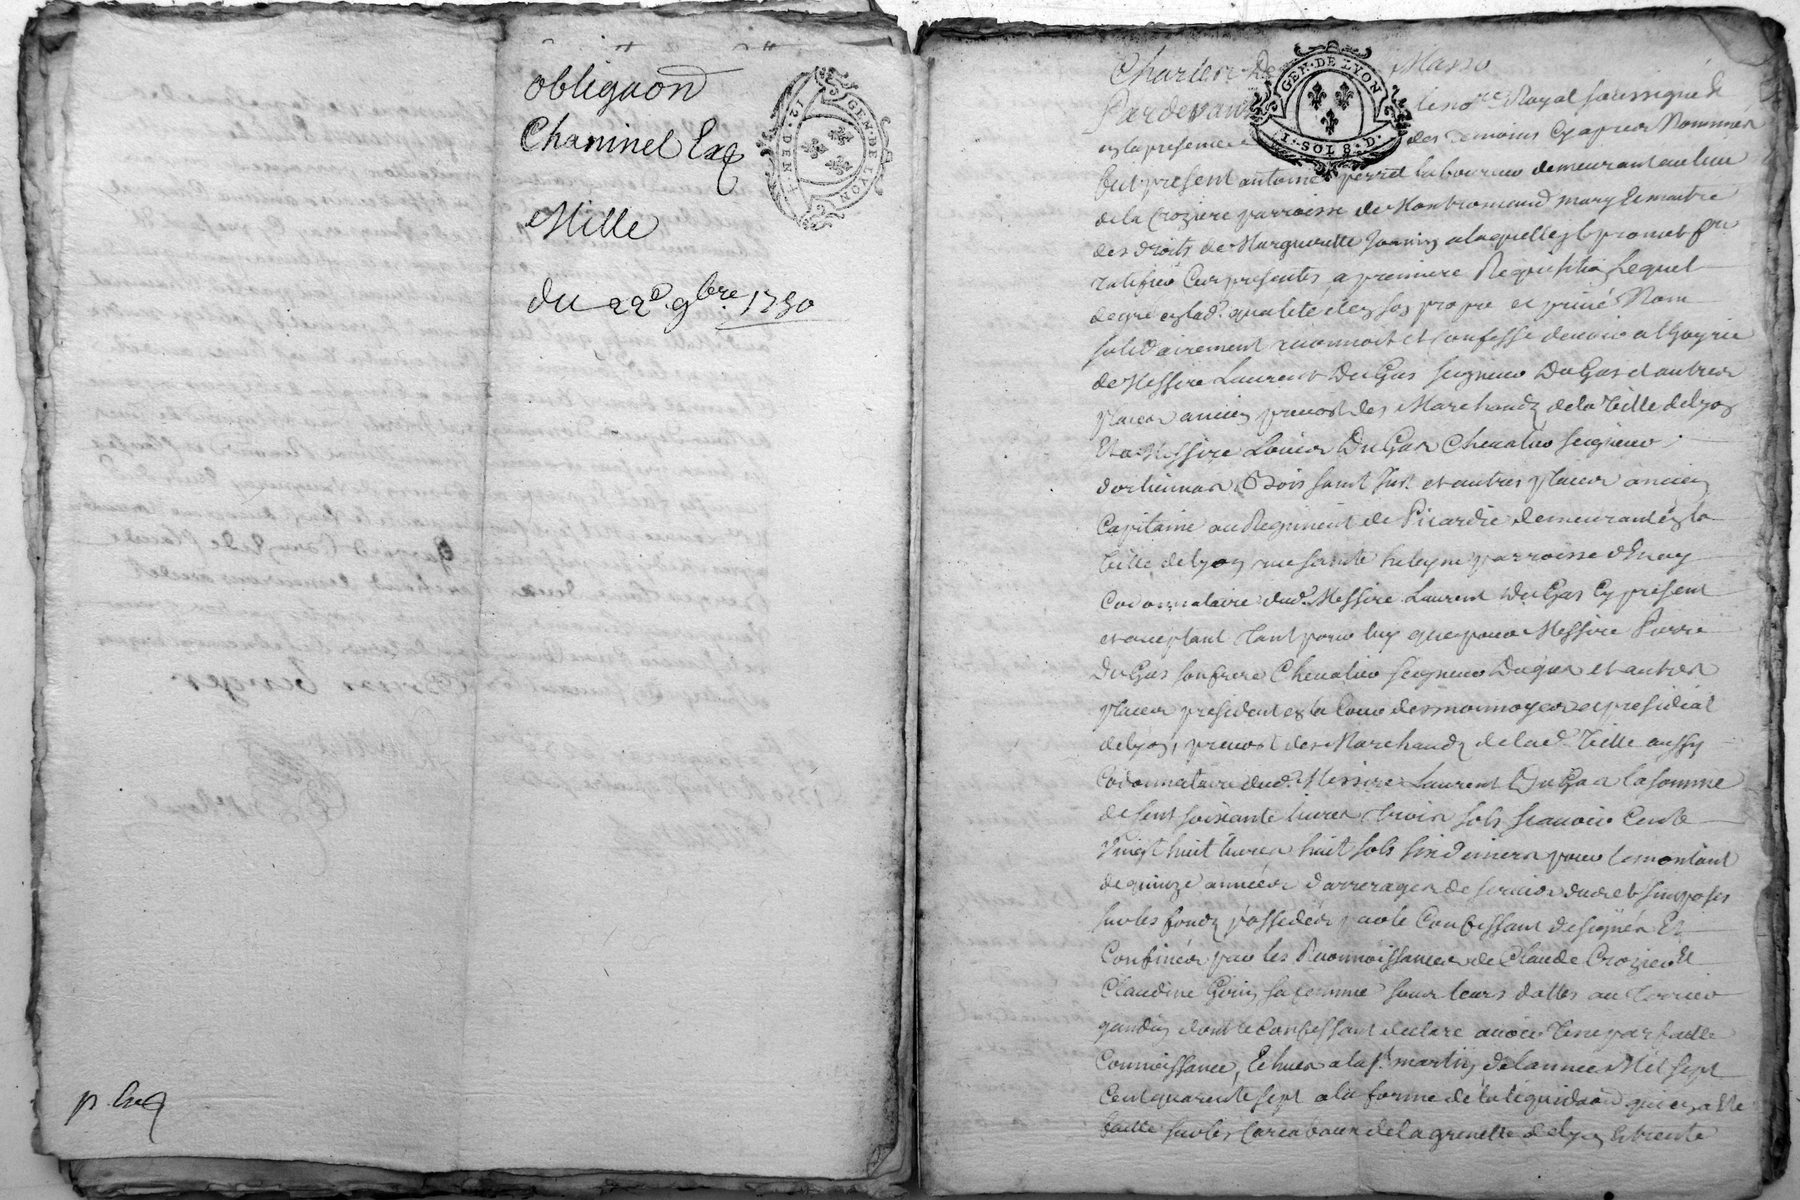 obligaon
Chaninel Exp
Mille
du 22e 9bre 1750
GEN·DE LYON
12·DEN
p. Exp
GEN·DE LYON
I·SOLS·D
Pardevant le nore Royal soussigné &
en la presence des temoins cy apres Nommes
fut present antoine perret laboureur demeurant au lieu
de la Croziere parroisse de Montromand mary et maitre
des droits de Marguerite Jannin a laquelle il promet fre
ratifier Ces presentes a premiere Requisition Lequel
de gré en lade qualité et en son propre et privé Nom
solidairement reconnoit et Confesse devoir a
de Messire Laurent DuGas seigneur DuGas et autres
places ancien prevost des Marchands de la Ville de Lyon
Et a Messire Louis DuGas Chevalier seigneur
Bois saint Just et autres places ancien
Capitaine au Regiment de Picardie demeurant en la
Ville de Lyon rue sainte heleyne parroisse d'Enay
Codonnataire dud. Messire Laurent DuGas Cy present
et acceptant tant pour luy que pour Messire Pierre
DuGas son frere Chevalier seigneur Dugas et autres
places president en la Cour des monnoyes et presidial
de Lyon, prevost des Marchands de lade Ville aussy
Codonnataire dud. Messire Laurent DuGas la somme
de Cent soixante livres trois sols scavoir Cent
Vingt huit livres huit sols six deniers pour le montant
de quinze années d'arrerages de servis dud et imposés
sur les fonds possedés par le Confessant designés Et
Confinés par les Reconnoissances de Claude Crozier et
Claudine Girin sa femme sous leurs dattes au Terrier
gandin dont le Confessant declare avoir Une parfaitte
Connoissance, Echues a la st martin de l'année Mil sept
Cent quarente sept a la forme de la liquidaon qui en a ete
faitte sur les Carcabeaux de la grenette de Lyon et trente